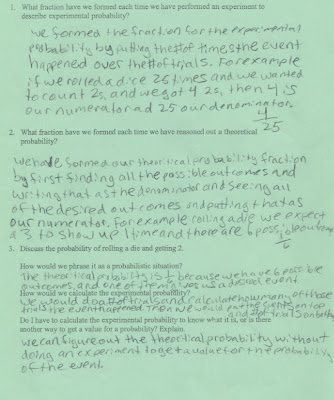 1. What fraction have we formed each time we have performed an experiment to
describe experimental probability?
we formed the fraction for the experimental
probability by putting the # of times the event
happened over the # of trials. For example
if we rolled a dice 25 times and we wanted
to count 2s, and we got 4 2s, then 4 is
our numerator and 25 our denominator.
4
25
2. What fraction have we formed each time we have reasoned out a theoretical
probability?
we have formed our theoritical probability fraction
by first finding all the possible outcomes and
writing that as the denominator and seeing all
of the desired outcomes and putting that as
our numerator. For example rolling a die we expect
a 3 to show up 1 time and there are 6 possible outcomes
1/6
3. Discuss the probability of rolling a die and getting 2.
How would we phrase it as a probabilistic situation?
The theoritical probability is 1/6 because we have 6 possible
outcomes, and one of them gives us a desired event
How would we calculate the experimental probability?
we would do a # of trials and calculate how many of those
trials the event happened. Then we would put the events on top
and # of trials on bottom
Do I have to calculate the experimental probability to know what it is, or is there
another way to get a value for a probability? Explain.
we can figure out the theoritical probability without
doing an experiment to get a value for the probability
of the event.